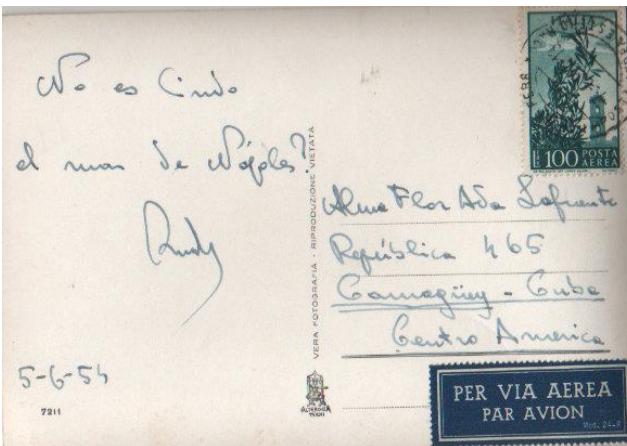 No es lindo
el mar de Nápoles?
Rudy
5-6-54
7211
VERA FOTOGRAFIA - RIPRODUZIONE VIETATA
ALTEROCCA
TERNI
L. 100 POSTA
AEREA
Alma Flor Ada Lafuente
República 465
Camagüey - Cuba
Centro America
PER VIA AEREA
PAR AVION